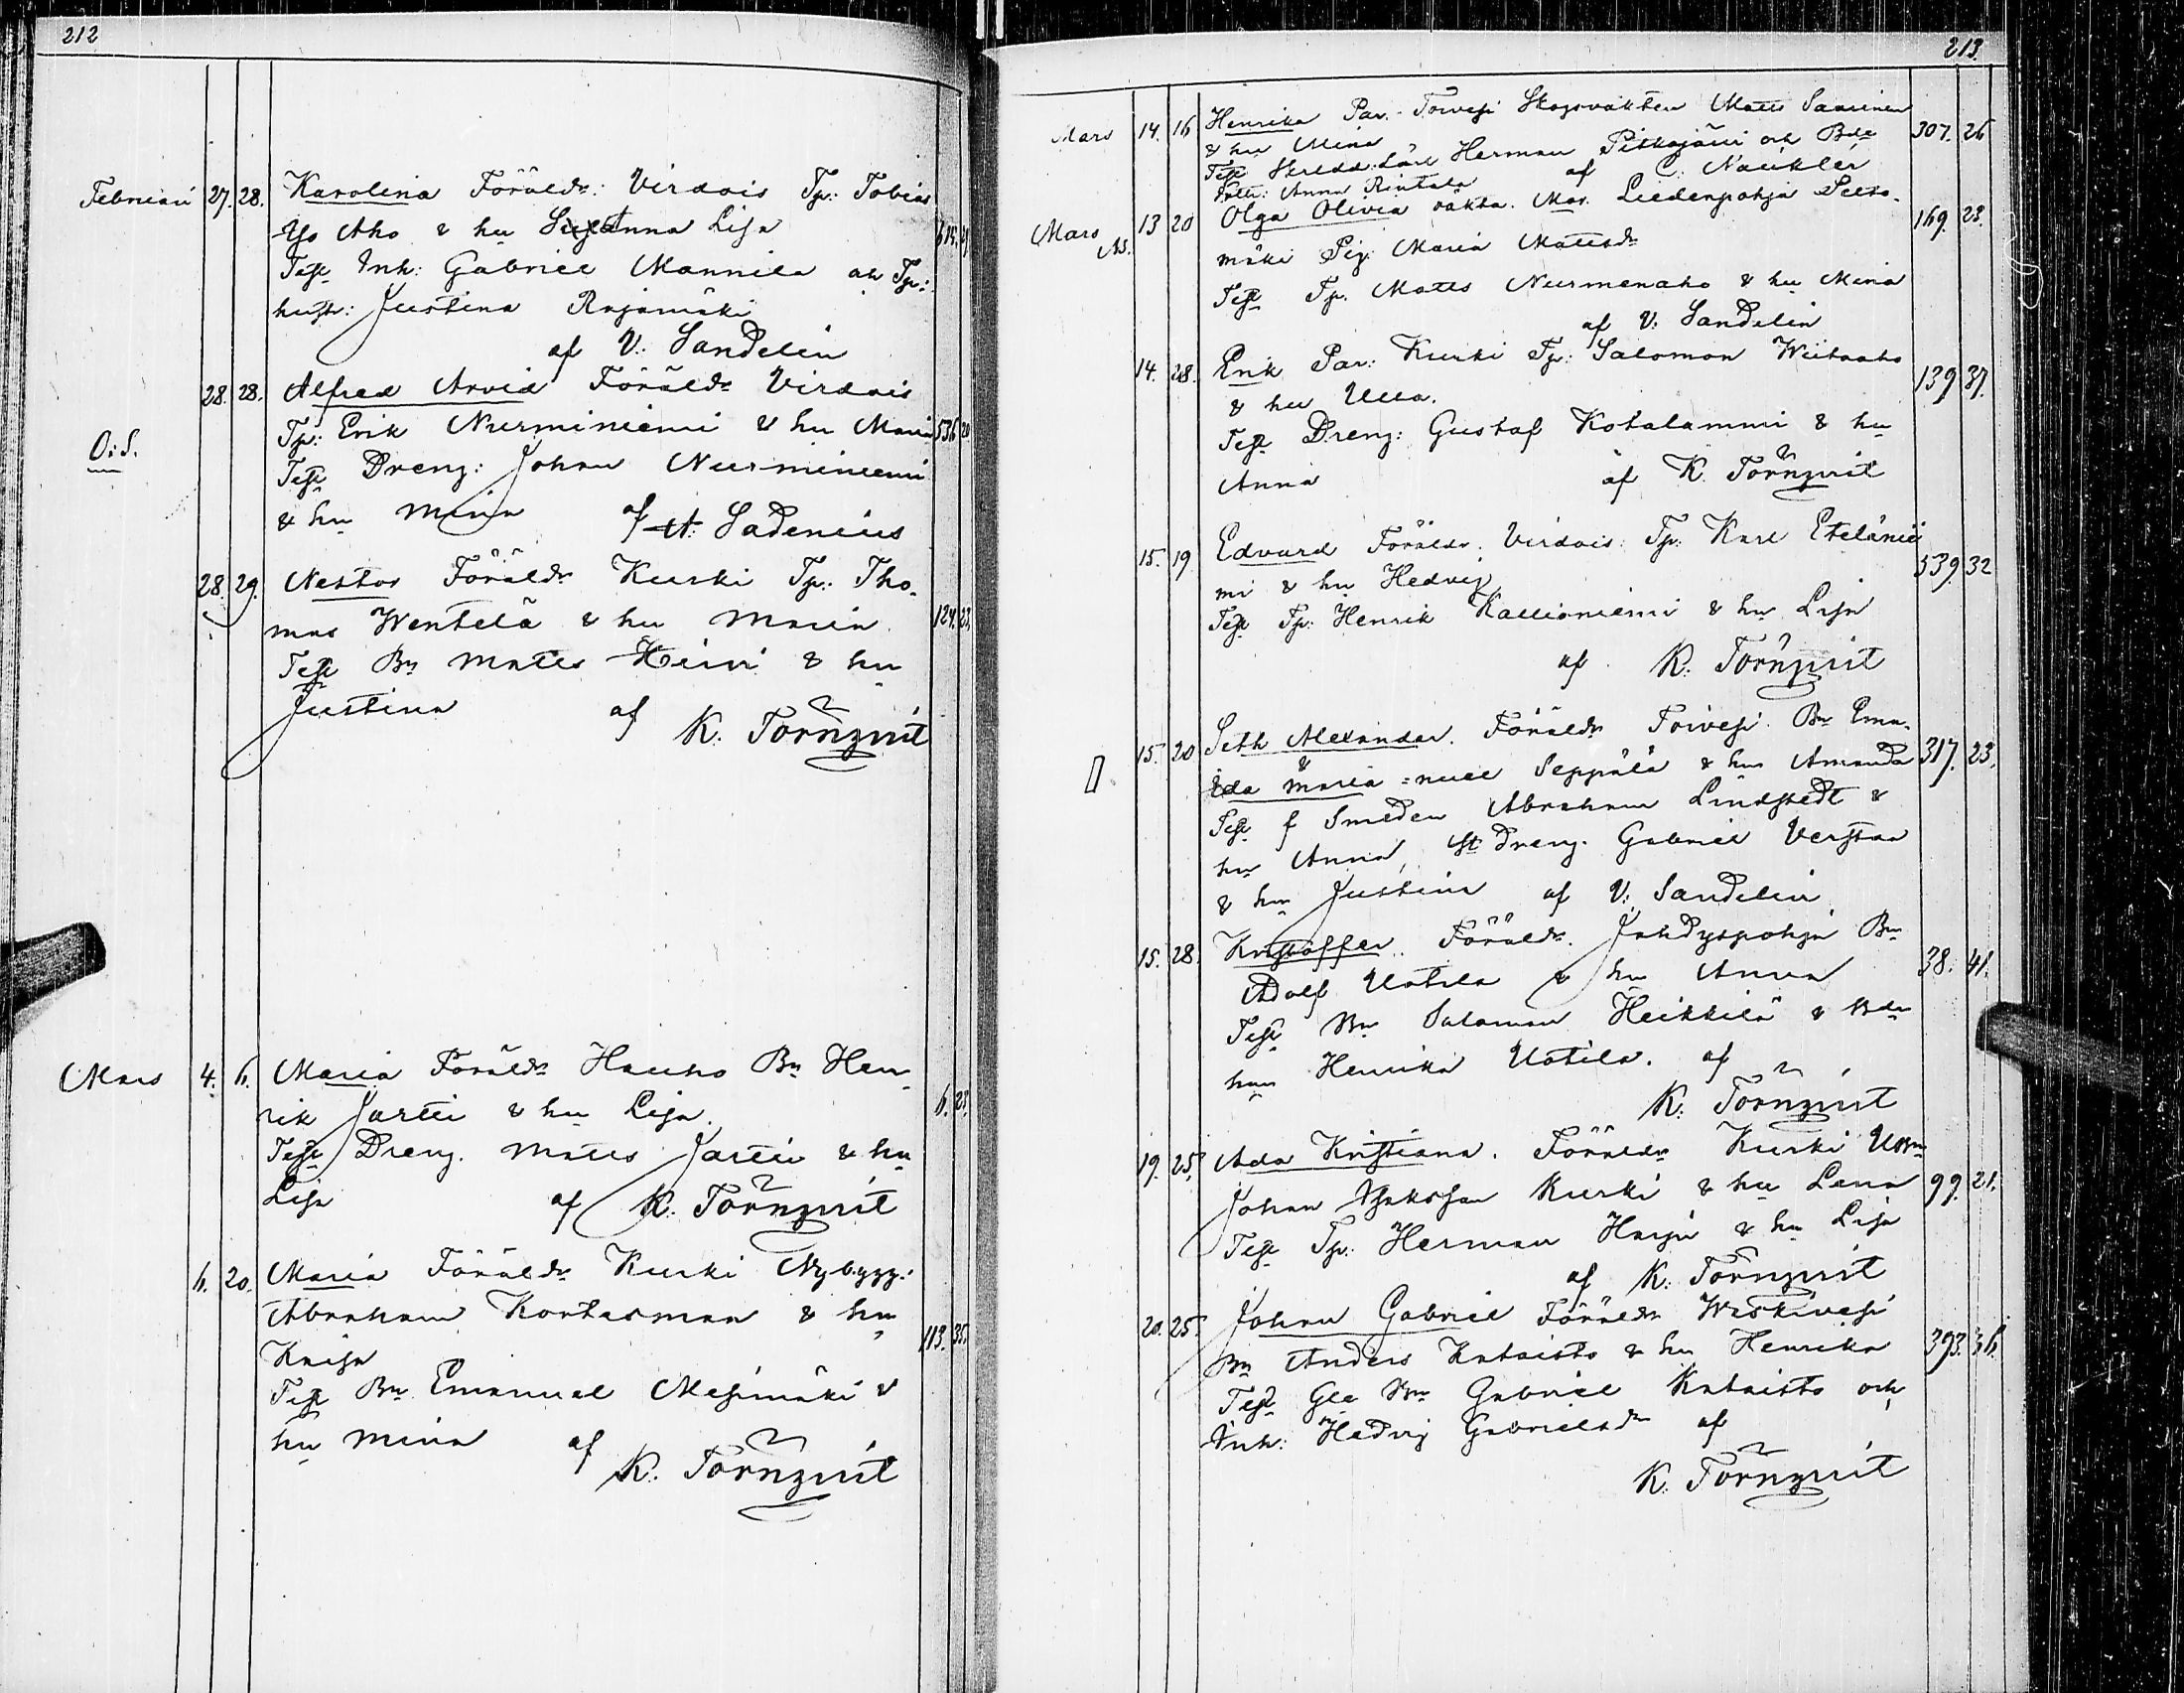 212
Februari 27. 28. Karolina Föräldr: Virdois Tp: Tobias
Yo Aho & hu Anna Lisa
Test Inh: Gabriel Mannila och Tp:
hustr: Justina Rajamäki
af V: Sandelin
28. 28. Alfred Arvid Föräldr Virdois
O:S. Tp: Erik Nurminiemi & hu Maria 536 20
Test Dreng: Johan Nurminiemi
& hu Mina af A: Ladenius
28. 29. Nestor Föräldr Kurki Tp: Tho-
mas Wentelä & hu Maria 124. 23.
Test Bn Matts Hirvi & hu
Justina af K: Törnqvist
Mars 4. 6. Maria Föräldr Hauho Bn Hen-
rik Jartti & hu Lisa. 6. 23.
Test Dreng. Matts Jartti & hu
Lisa af K. Törnqvist
6. 20. Maria Föräldr Kurki Nybygg:
Abraham Kortasman & hu 113. 35.
Kaisa
Test Bn Emanuel Mesimäki &
hu Mina af K: Törnqvist
213.
Mars 14. 16 Henrika Par. Toivesi Skogsvakten Matts Saarinen 307. 26
& hu Mina
Test Skredd: Lärl Herman Pitkajärvi och Bde
Dottr: Anna Rintala af C: Nauklér
Mars 13 20 Olga Olivia oäkta. Mor. Liedenpohja 169. 23.
mäki Pig. Maria Mattsdr
Test Tp. Matts Nurmenaho & hu Mina
af V: Sandelin
14. 28. Erik Par: Kurki Tp: Salomon Wiitaaho 139 37.
& hu Ulla.
Test Dreng: Gustaf Kotalammi & hu
Anna af K. Törnqvist
15. 19 Edvard Föräldr. Virdois: Tp: Karl Eteläniē
mi & hu Hedvig 539 32
Test Tp: Henrik Kallioniemi & hu Lisa
af K: Törnqvist
15. 20 Seth Alexander. Föräldr Toivesi. Bn Ema-
& Ida Maria =nuel Seppälä & hu Amanda 317. 23.
Test f Smeden Abraham Lindstedt &
hu Anna, St Dreng. Gabriel Verstar
& hu Justina af V: Sandelin
15. 28. Kristoffer. Föräldr. Jähdyspohja Bn
Adolf Uotila & hu Anna 38. 41.
Test Bn Salomon Heikkilä & Bde
hun Henrika Uotila. af
K: Törnqvist
19. 25. Ada Kristiana. Föräldr Kurki UBn
Johan Isaksson Kurki & hu Lena 99. 21.
Test Tp. Herman Harju & hu Lisa
af K: Törnqvist
20. 25. Johan Gabriel Föräldr Waskivesi
Bn Anders Kataisto & hu Henrika 393. 36.
Test Gle Bn Gabriel Kataisto och
Inh: Hedvig Gabrielsdr af
K. Törnqvist